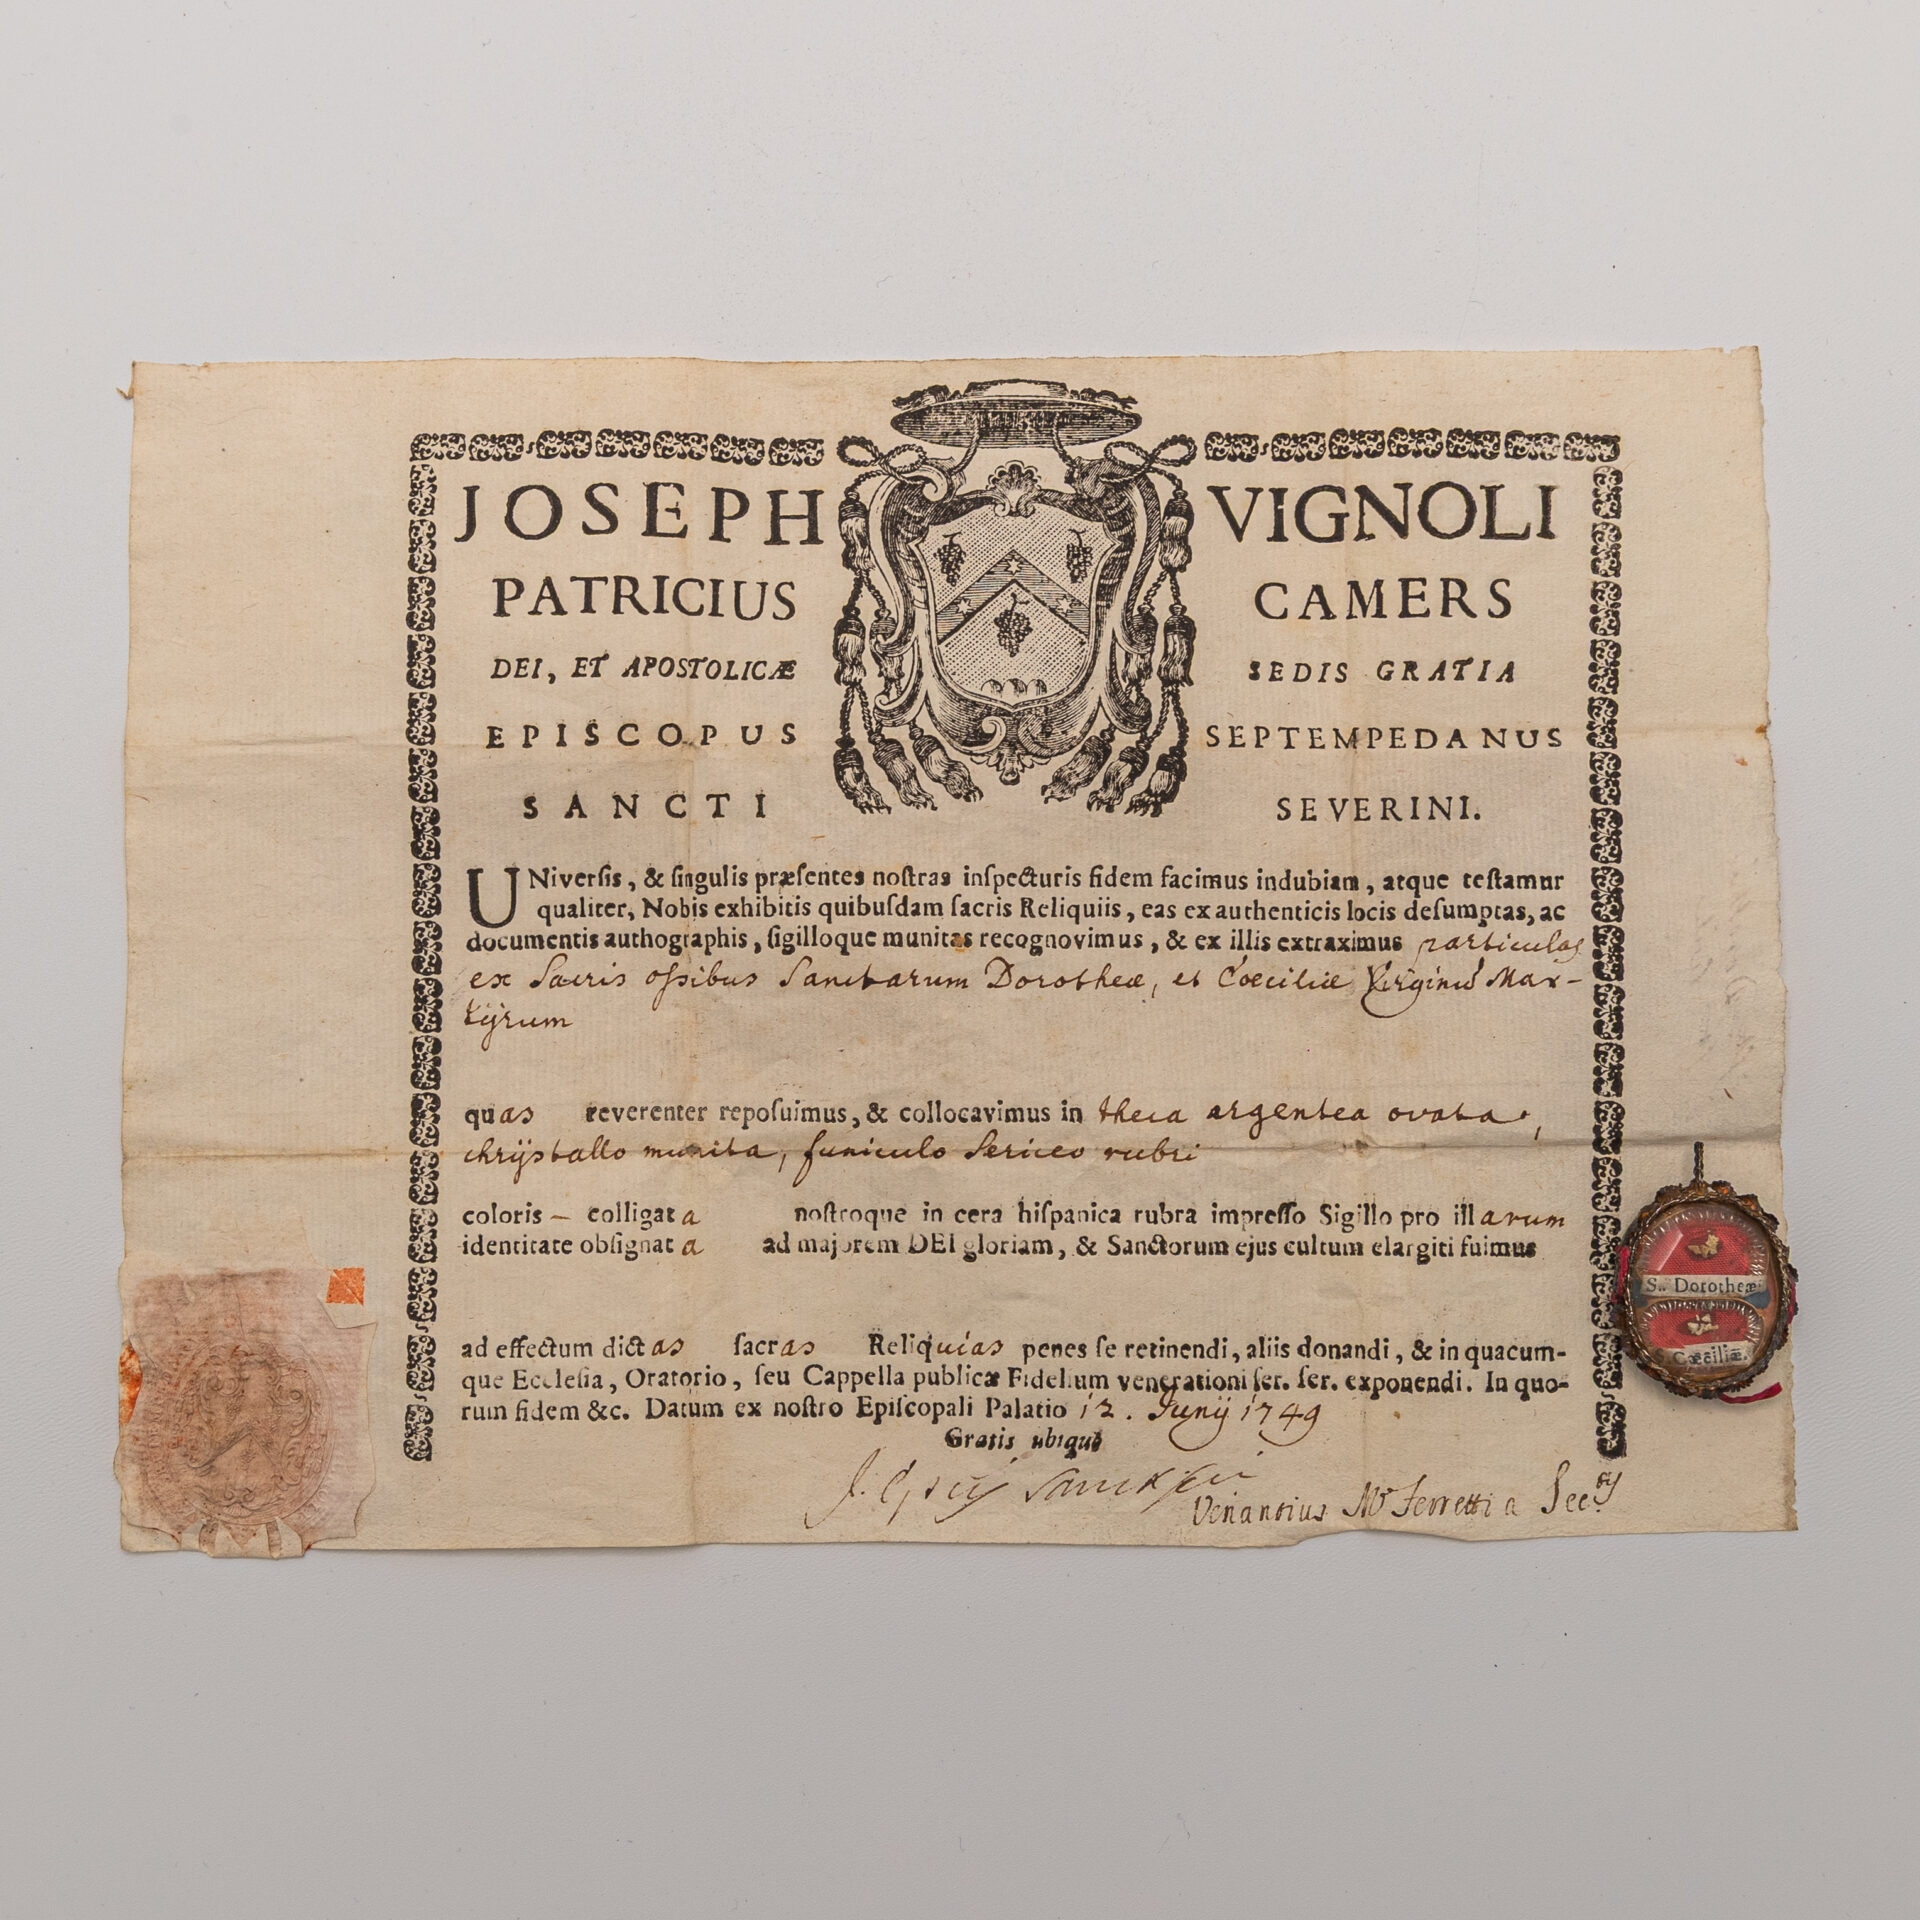 JOSEPH VIGNOLI
PATRICIUS CAMERS
DEI, ET APOSTOLICÆ SEDIS GRATIA
EPISCOPUS SEPTEMPEDANUS
SANCTI SEVERINI.
UNiversis, & singulis præsentes nostras inspecturis fidem facimus indubiam, atque testamur
qualiter, Nobis exhibitis quibusdam sacris Reliquiis, eas ex authenticis locis desumptas, ac
documentis authographis, sigilloque munitas recognovimus, & ex illis extraximus particulas
ex Sacris ossibus Sanctarum Dorotheæ, et Cœciliæ Virginũ Mar-
tÿrum
quas reverenter reposuimus, & collocavimus in theca argentea ovata,
chrÿstallo munita, funiculo Sericeo rubri
coloris - colligata nostroque in cera hispanica rubra impresso Sigillo pro illarum
identitate obsignata ad majorem DEI gloriam, & Sanctorum ejus cultum elargiti fuimus
ad effectum dictas sacras Reliquias penes se retinendi, aliis donandi, & in quacum-
que Ecclesia, Oratorio, seu Cappella publicæ Fidelium venerationi ser. ser. exponendi. In quo-
rum fidem &c. Datum ex nostro Episcopali Palatio 12. Junÿ 1749
Gratis ubique
Venantius Mr Ferretti a Secrÿ
S. Dorotheæ
S. Cæciliæ.